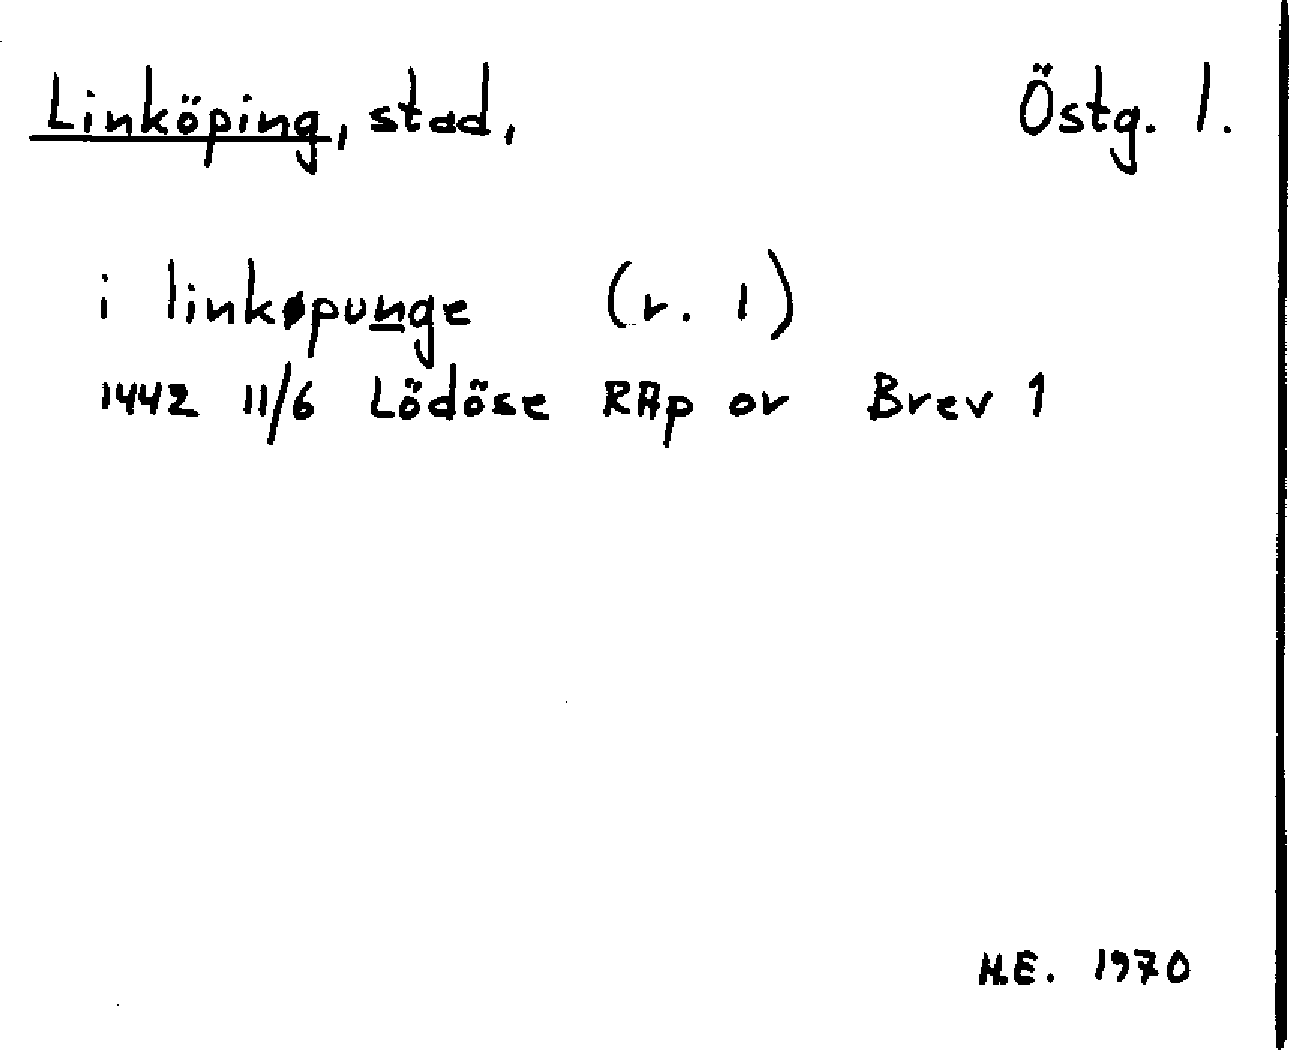 Linköping, stad, Östg. l.
i linkøpunge (r. 1)
1442 11/6 Lödöse RAp or Brev 1
M.E. 1970